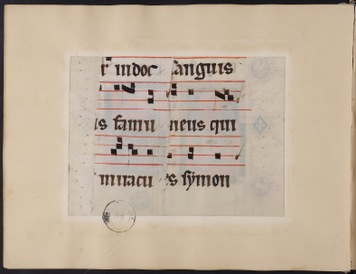 r indoc sanguis
is famu neus qui
miracu es symon